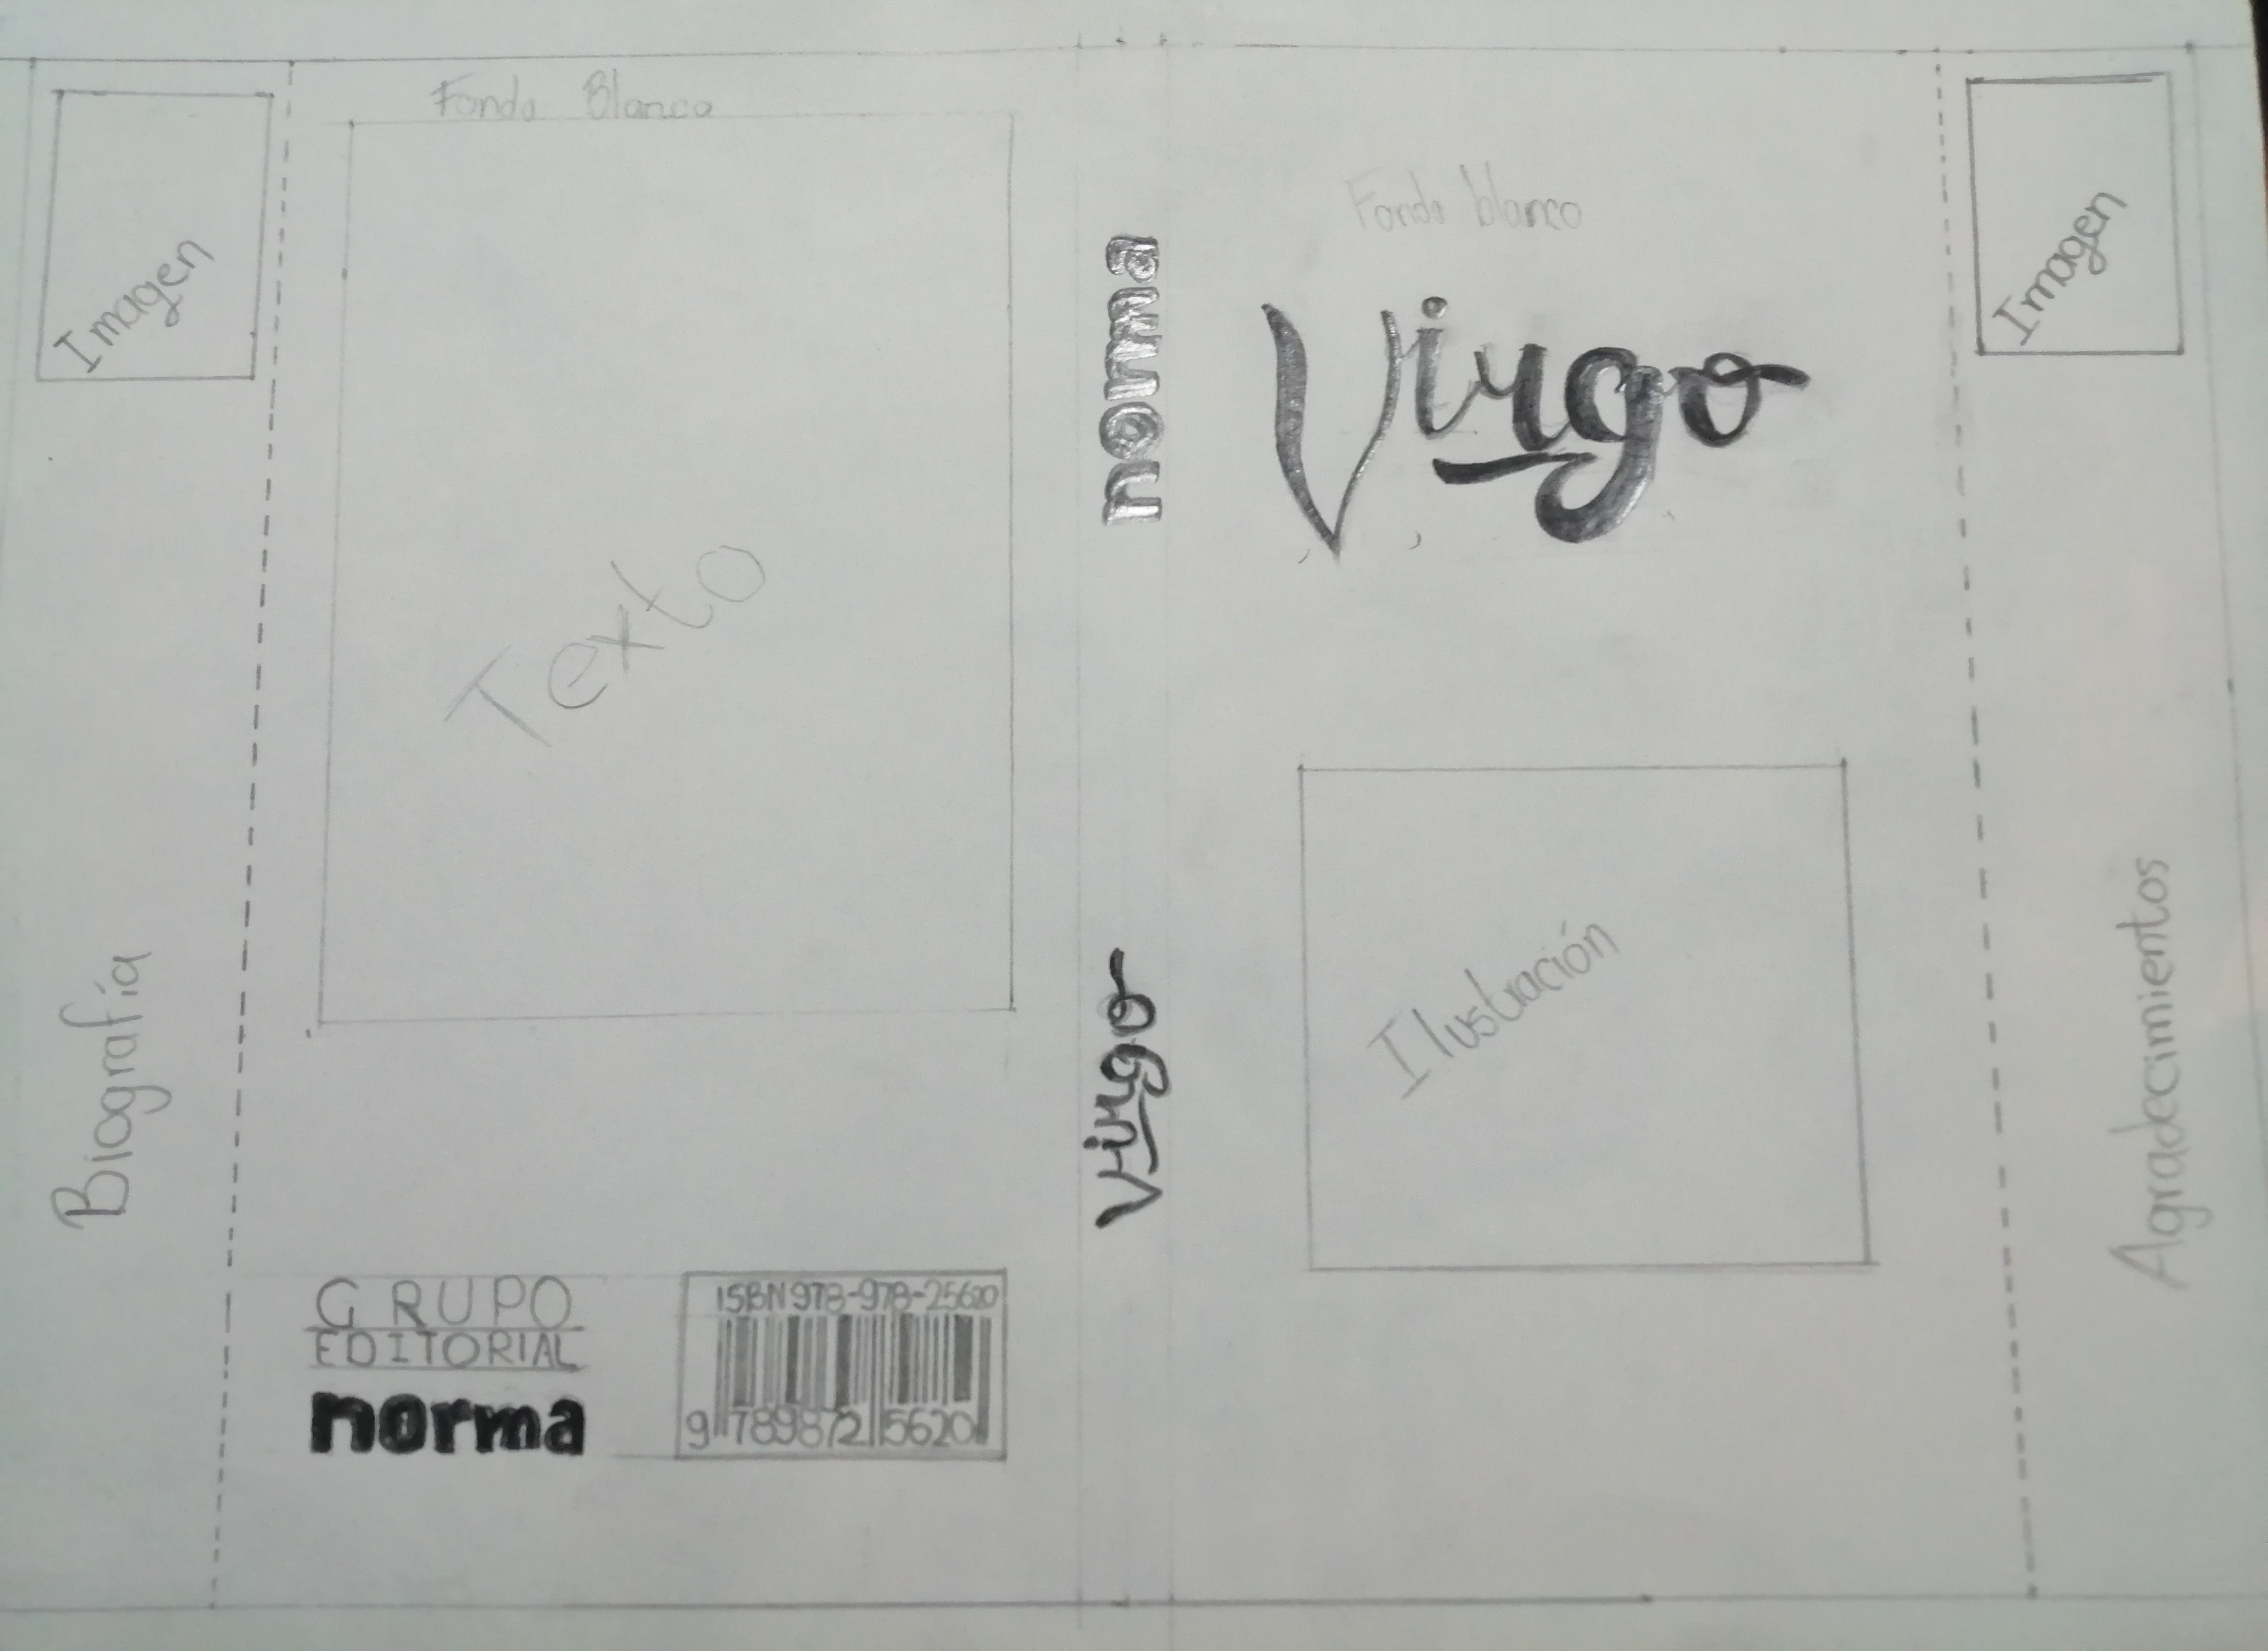 Imagen
Biografía
Fondo Blanco
Texto
GRUPO
EDITORIAL
norma
ISBN978-978-25620
9 789872 5620
norma
Virgo
Fondo blanco
Virgo
Ilustración
Imagen
Agradecimientos